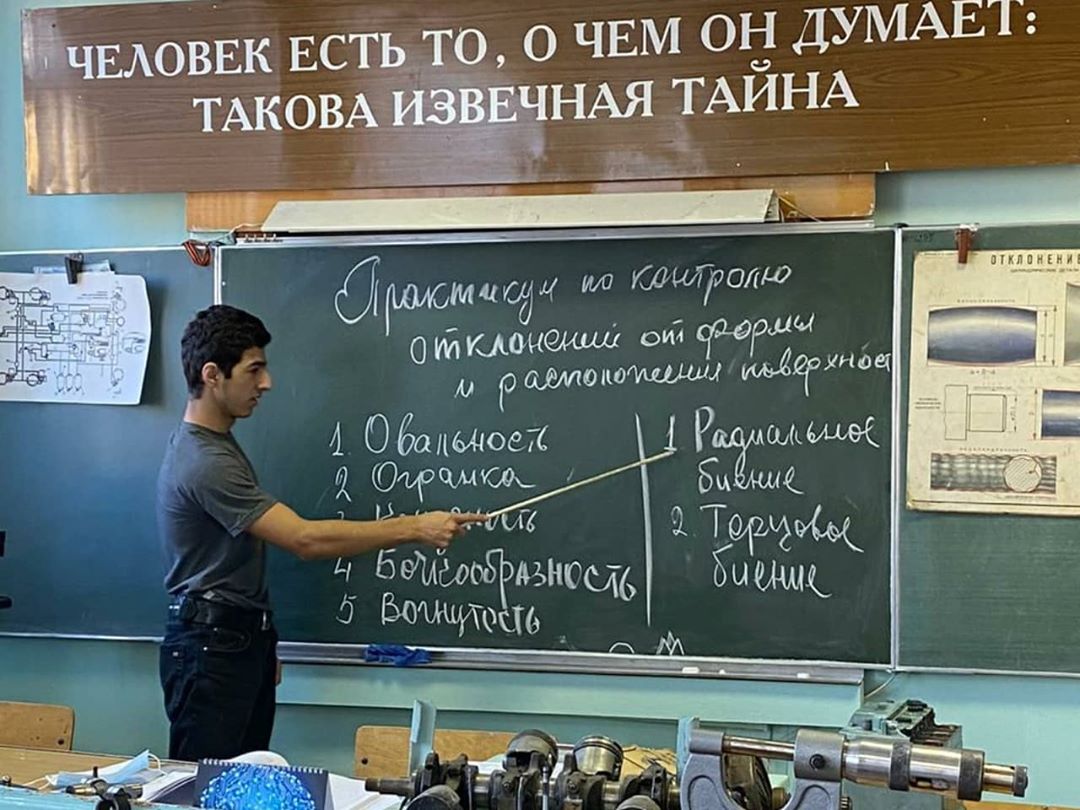 ЧЕЛОВЕК ЕСТЬ ТО, О ЧЕМ ОН ДУМАЕТ:
ТАКОВА ИЗВЕЧНАЯ ТАЙНА
Практикум по контролю
отклонений от формы
и расположения поверхност
1. Овальность
2 Огранка
3
4 Бочкообразность
5 Вогнутость
1 Радиальное
биение
2. Торцовое
биение
ОТКЛОНЕНИЕ